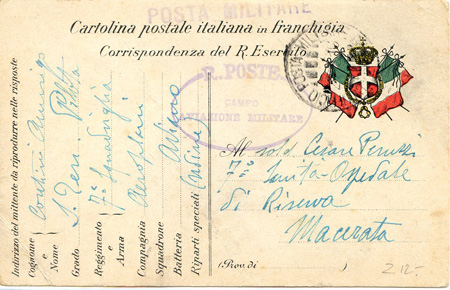 POSTA MILITARE
Cartolina postale italiana in franchigia
Corrispondenza del R. Esercito
R. POSTE
CAMPO
AVIAZIONE MILITARE
Indirizzo del mittente da riprodurre nelle risposte
Cognome e Nome
Grado S. Ten.
Reggimento e Arma 7a Squadriglia
Compagnia Aeroplani
Squadrone
Batteria Aviano
Riparti speciali
Al sold. Cesare Peruzzi
7a Sanità - Ospedale
di Riserva
Macerata
(Prov. di )
Z 12.-